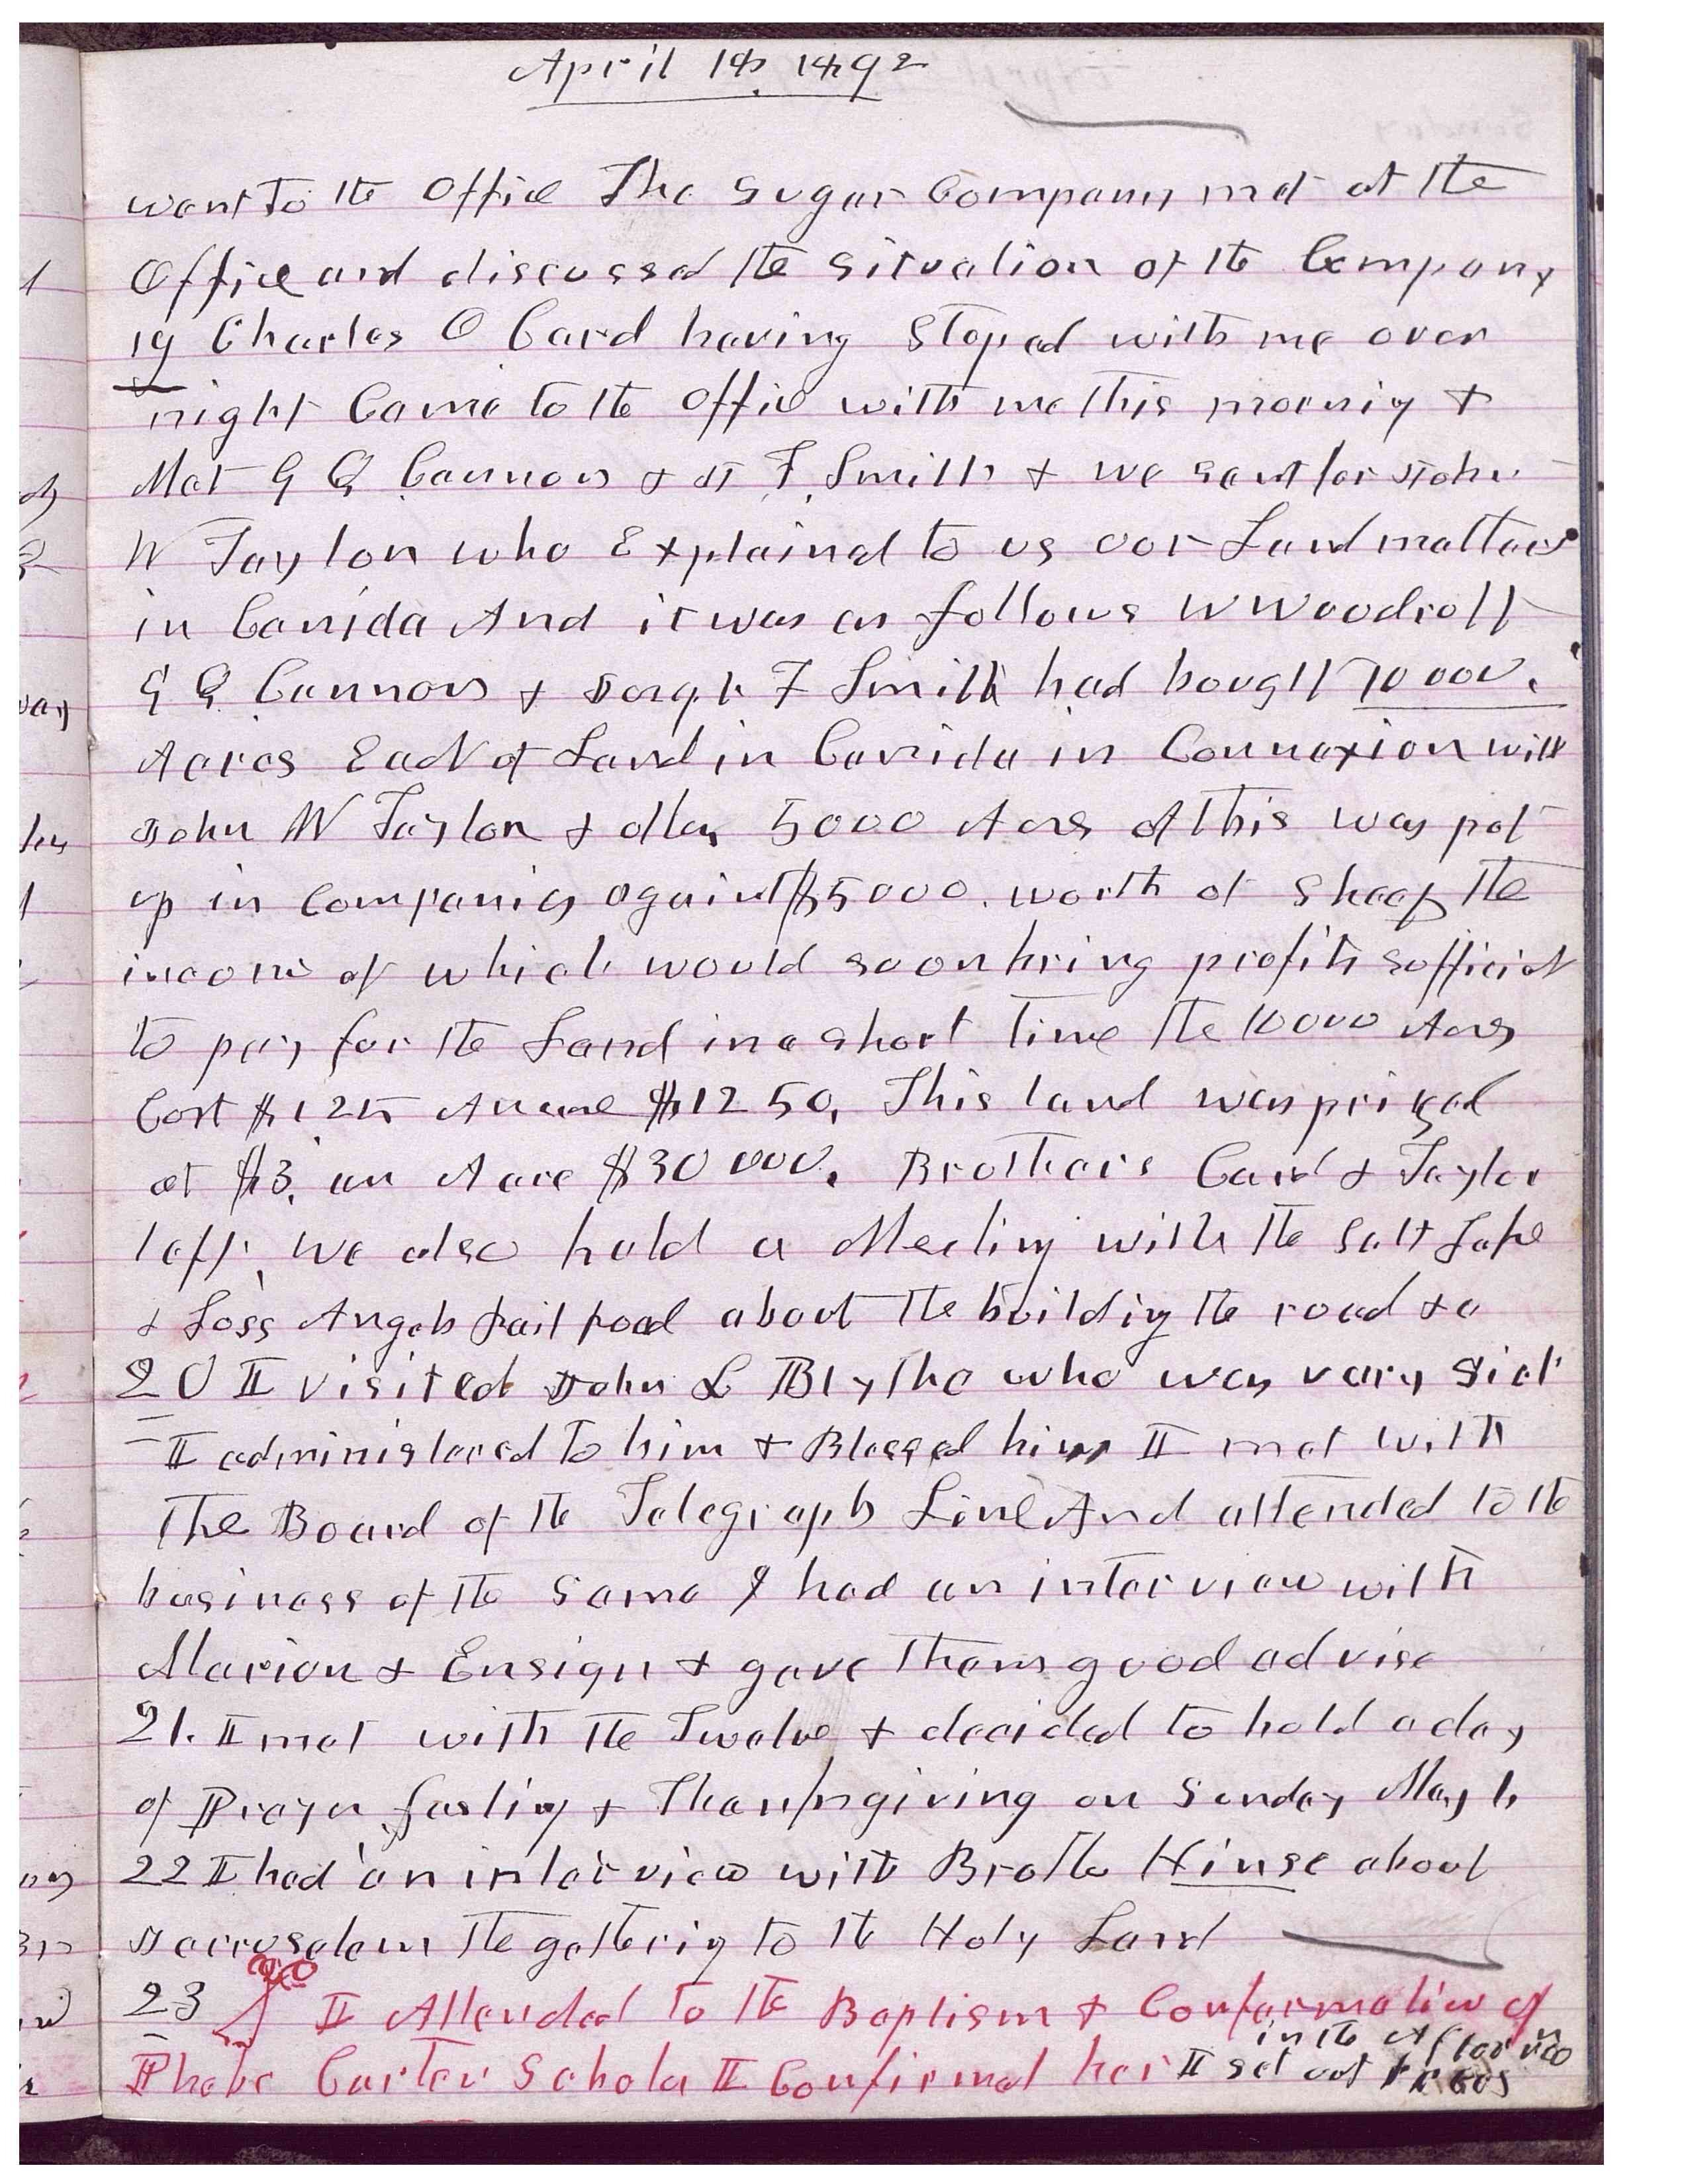 April 18, 1892
went to the Office The Sugar Company met at the
Office and discussed the situation of the Company
19 Charles O Card having Stoped with me over
night Came to the Office with me this morning &
Met G Q Cannon & J F. Smith & we sent for John
W Taylor who Explained to us our Land matters
in Canida And it was as follows W Woodruff
G Q Cannon & Joseph F Smith had bought 10000.
Acres Each of Land in Canida in Connexion with
John W Taylor & others 5000 Acres of this was put
up in Companies against $5000. worth of Sheep the
income of which would soon bring profits sufficient
to pay for the Land in a short time the 10000 Acres
Cost $125 An acre $1250. This land was prized
at $3. an Acre $30000. Brothers Card & Taylor
left. We also held a Meeting with the Salt Lake
& Loss Angels Rail Road about the building the road &c
20 I visited John L Blythe who was very Sick
I administered to him & Blessed him I met with
The Board of the Telegraph Line And attended to the
business of the Same I had an interview with
Marion & Ensign & gave them good advise
21. I met with the Twelve & decided to hold a day
of Prayer fasting & Thanksgiving on Sunday May 1.
22 I had an interview with Brother Hinse about
Jerrusalem the gathering to the Holy Land
23 I Attended to the Baptism & Conformation of
Phebe Carter Scholes I Confirmed her I set out trees
in the Afternoon